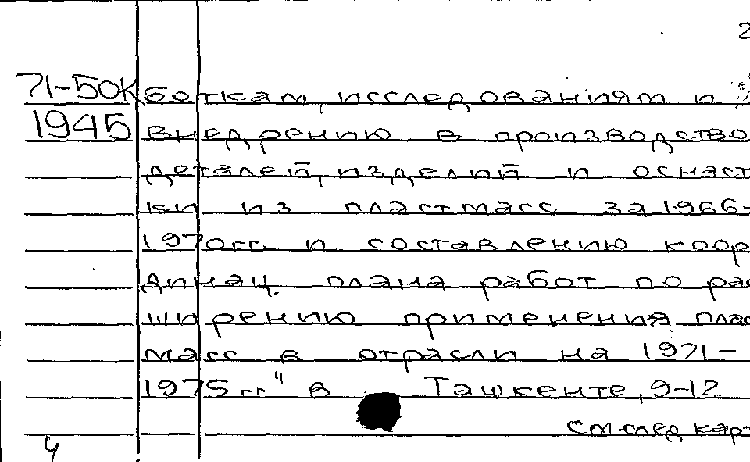 2
71-50К боткам, исследованиям и
1945 внедрению в производство
деталей, изделий и оснаст
ки из пластмасс за 1966-
1970гг. и составлению коор
динац. плана работ по рас
ширению применения плас
масс в отрасли на 1971-
1975гг" в Ташкенте, 9-12
см след карт
4